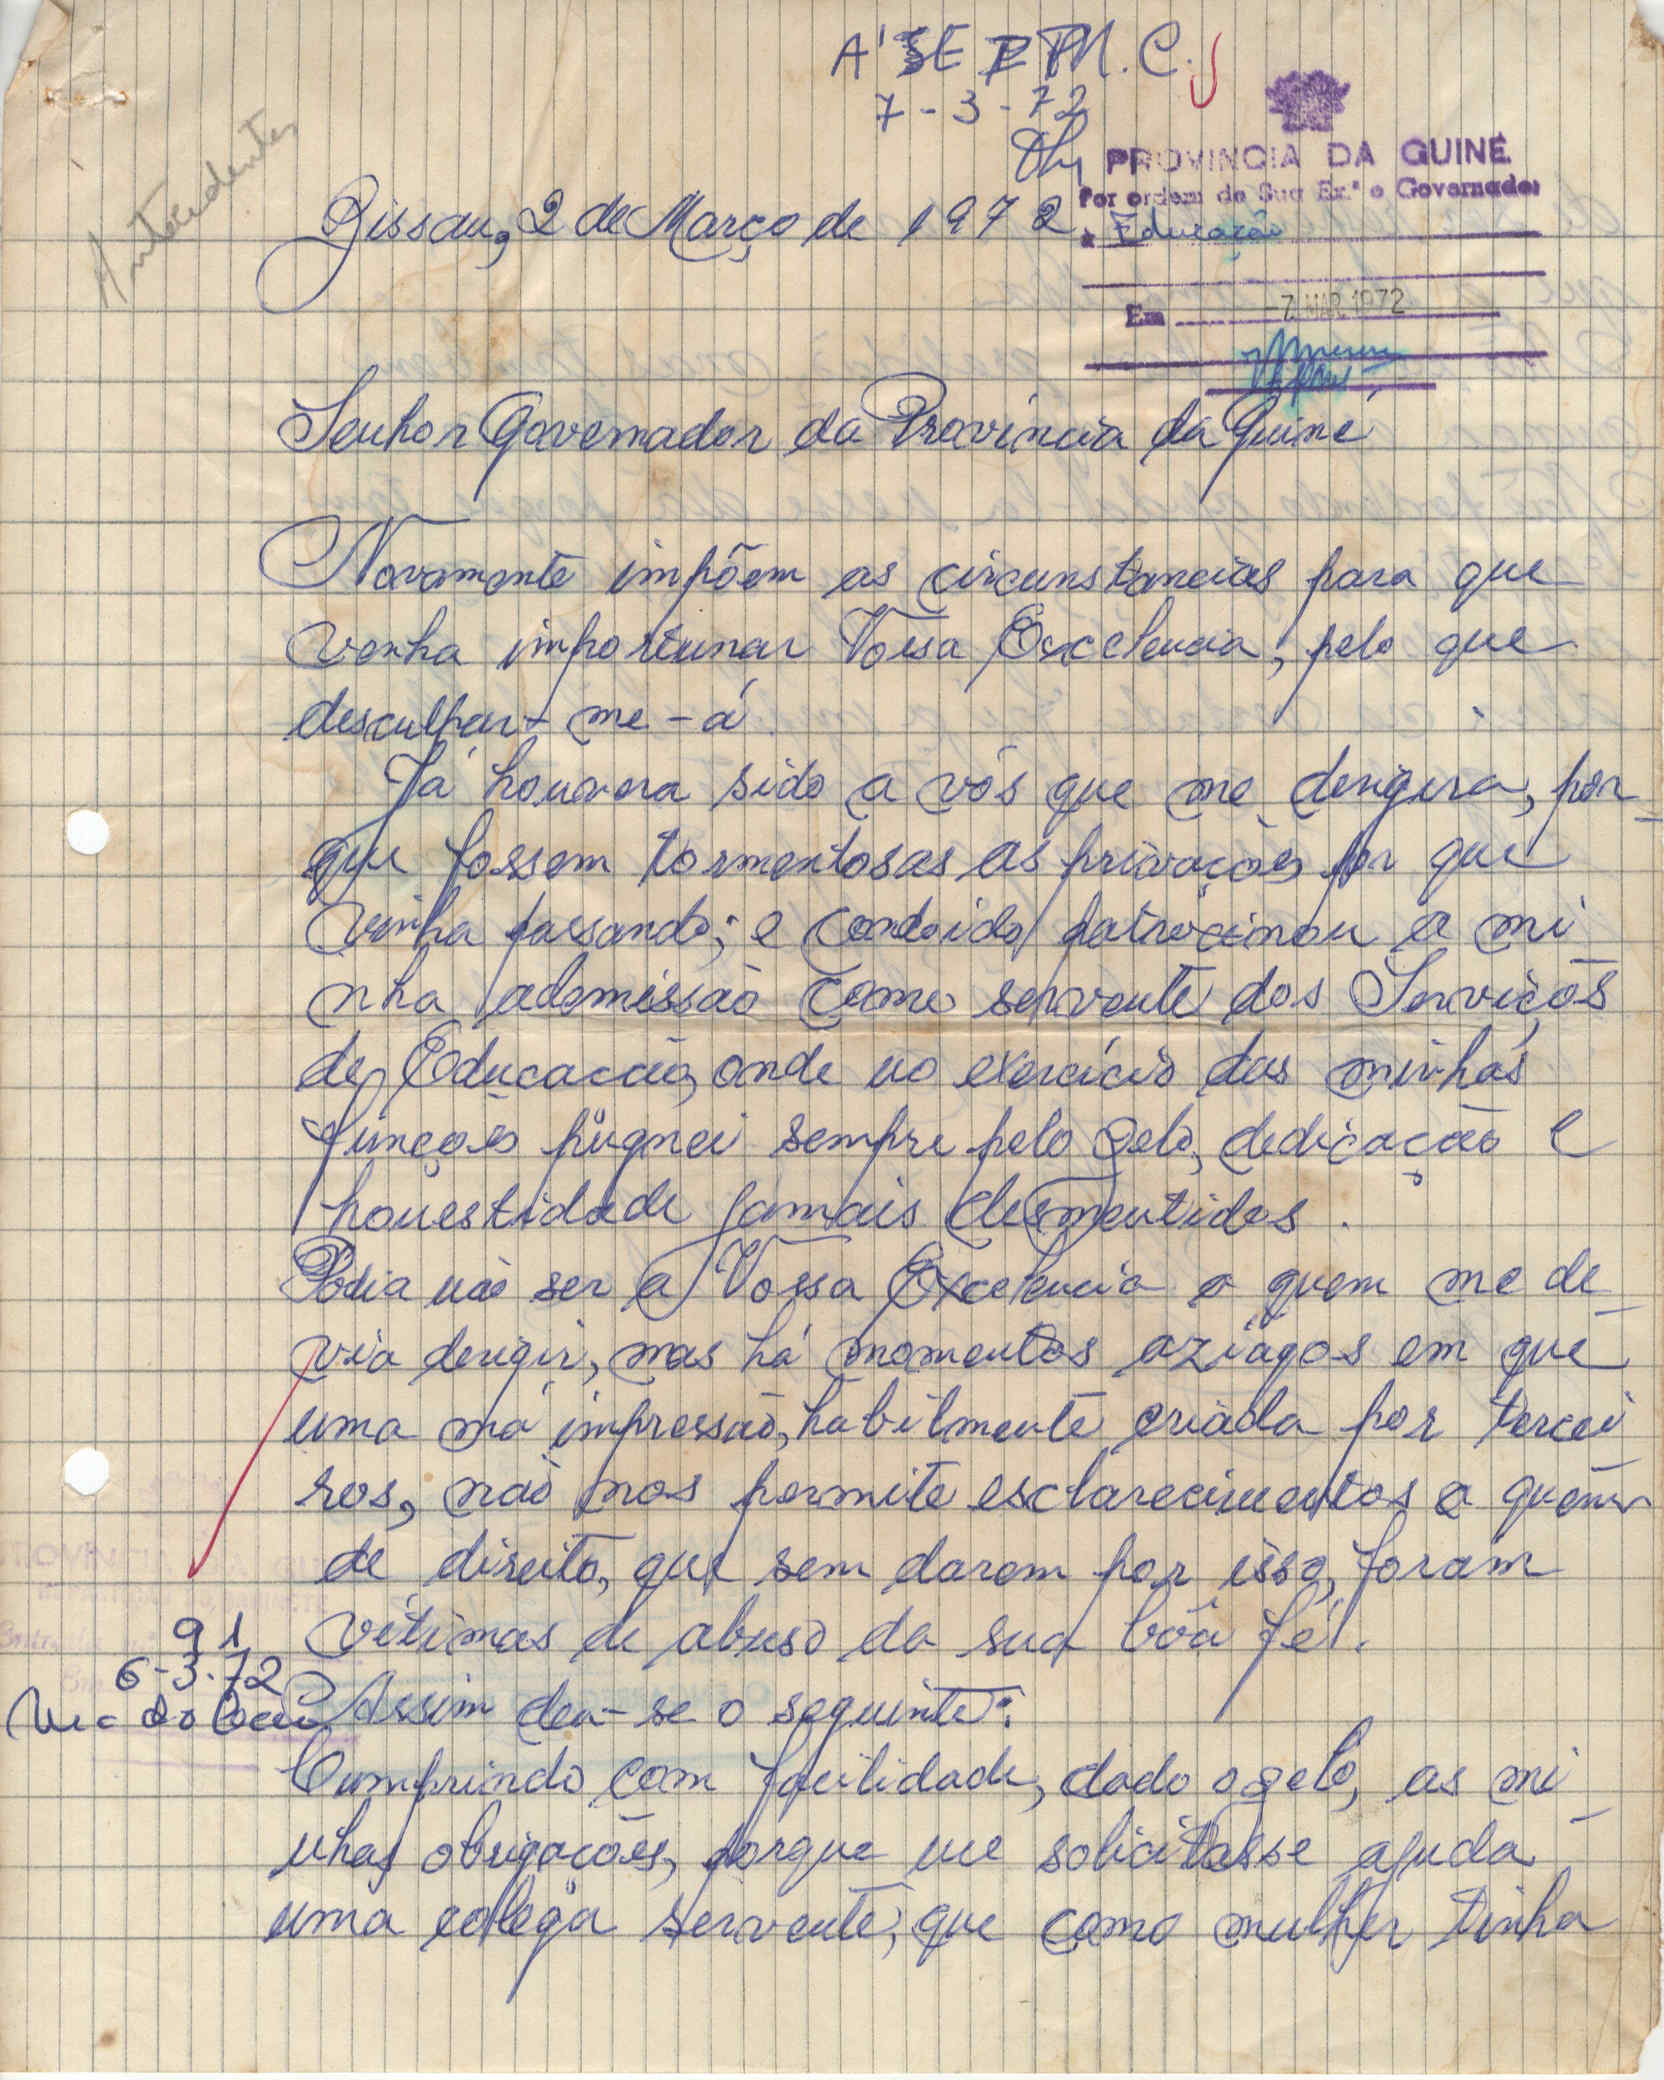 A' SE
7-3-72
PROVINCIA DA GUINÉ
Por ordem de Sua Ex.ª o Governador
Antecedentes
Bissau, 2 de Março de 1972
à Educação
Em 7 MAR 1972
Senhor Governador da Província da Guiné
Novamente impõem as circunstancias para que
venha importunar Vossa Excelencia, pelo que
desculpar-me-á.
Já houvera sido a vós que me derigira, por-
que fossem tormentosas as privações por que
vinha passando; e condoido patrocinou a mi
nha ademissão como servente dos Serviços
de Educação, onde no exercício das minhas
funções pugnei sempre pelo zelo, dedicação e
honestidade jamais desmentidos.
Podia não ser a Vossa Excelencia a quem me de
via derigir, mas há momentos aziagos em que
uma má impressão, habilmente criada por tercei
ros, não nos permite esclarecimentos a quem
de direito, que sem darem por isso, foram
vítimas de abuso da sua bôa fé.
91
6-3-72
Assim deu-se o seguinte:
Cumprindo com facilidade, dado o zelo, as mi
nhas obrigações, porque me solicitasse ajuda
uma colega servente, que como mulher tinha